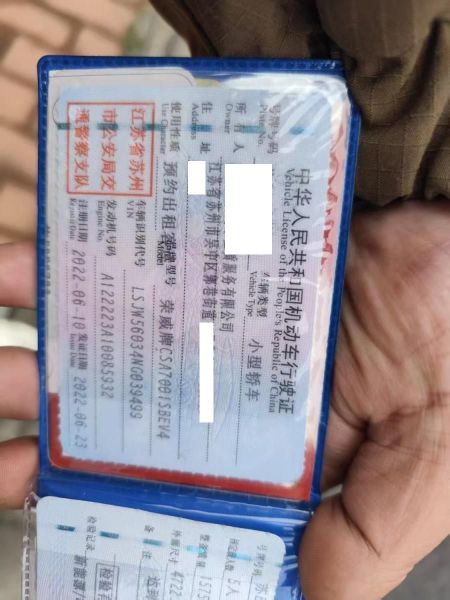 中华人民共和国机动车行驶证
Vehicle License of the People's Republic of China
号牌号码
Plate No.
车辆类型
Vehicle Type
小型轿车
所有人
Owner
服务有限公司
住址
Address
江苏省苏州市吴中区郭巷街道
使用性质
Use Character
预约出租
品牌型号
Model
荣威牌CSA7001SBEV4
江苏省苏州
市公安局交
通警察支队
车辆识别代号
VIN
LSJW56034NG039499
发动机号码
Engine No.
A122223A10085932
注册日期
Register Date
2022-06-10
发证日期
Issue Date
2022-06-23
号牌号码
5人
整备质量
157
外廓尺寸
4722
备注
检验记录
新能源